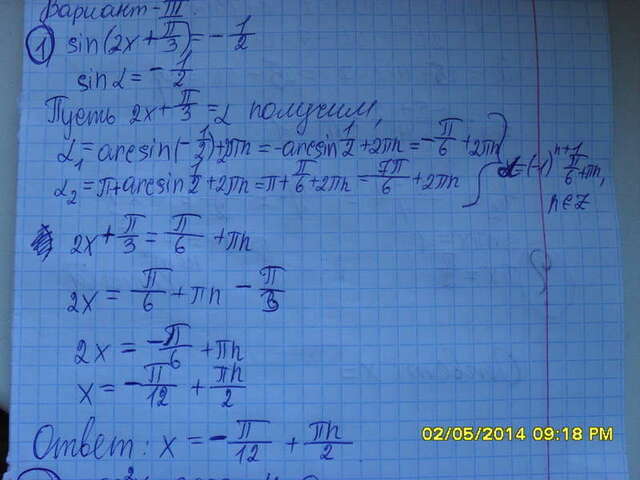 Вариант-III.
1 sin(2x + π/3) = - 1/2
sin α = - 1/2
Пусть 2x + π/3 = α получим,
α₁ = arcsin(- 1/2) + 2πn = -arcsin 1/2 + 2πn = - π/6 + 2πn
α₂ = π + arcsin 1/2 + 2πn = π + π/6 + 2πn = 7π/6 + 2πn
α = (-1)ⁿ⁺¹ π/6 + πn,
n ∈ Z
2x + π/3 = π/6 + πn
2x = π/6 + πn - π/3
2x = - π/6 + πn
x = - π/12 + πn/2
Ответ: x = - π/12 + πn/2
02/05/2014 09:18 PM